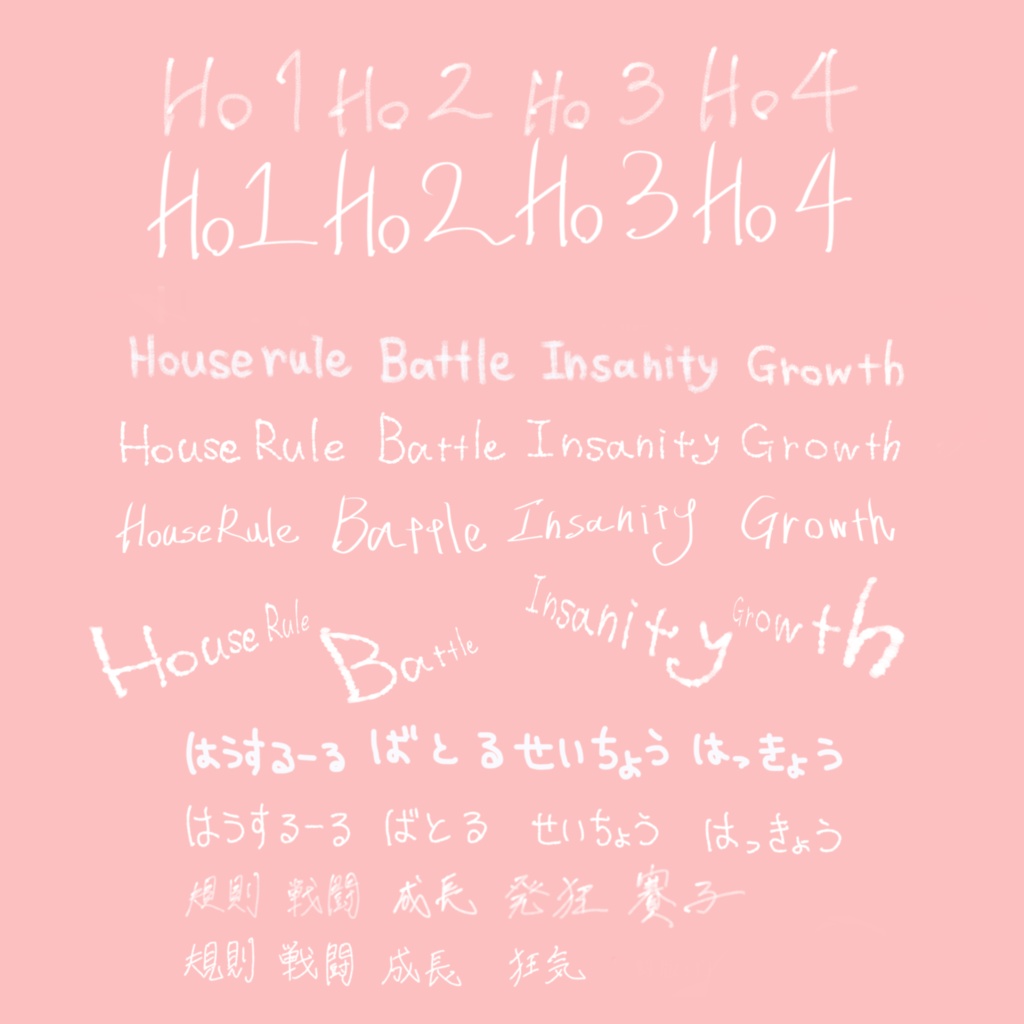 Ho 1 Ho 2 Ho 3 Ho 4
Ho 1 Ho 2 Ho 3 Ho 4
House rule Battle Insanity Growth
House Rule Battle Insanity Growth
House Rule Battle Insanity Growth
House Rule Battle Insanity Growth
はうするーる ばとる せいちょう はっきょう
はうするーる ばとる せいちょう はっきょう
規則 戦闘 成長 発狂 賽子
規則 戦闘 成長 狂気